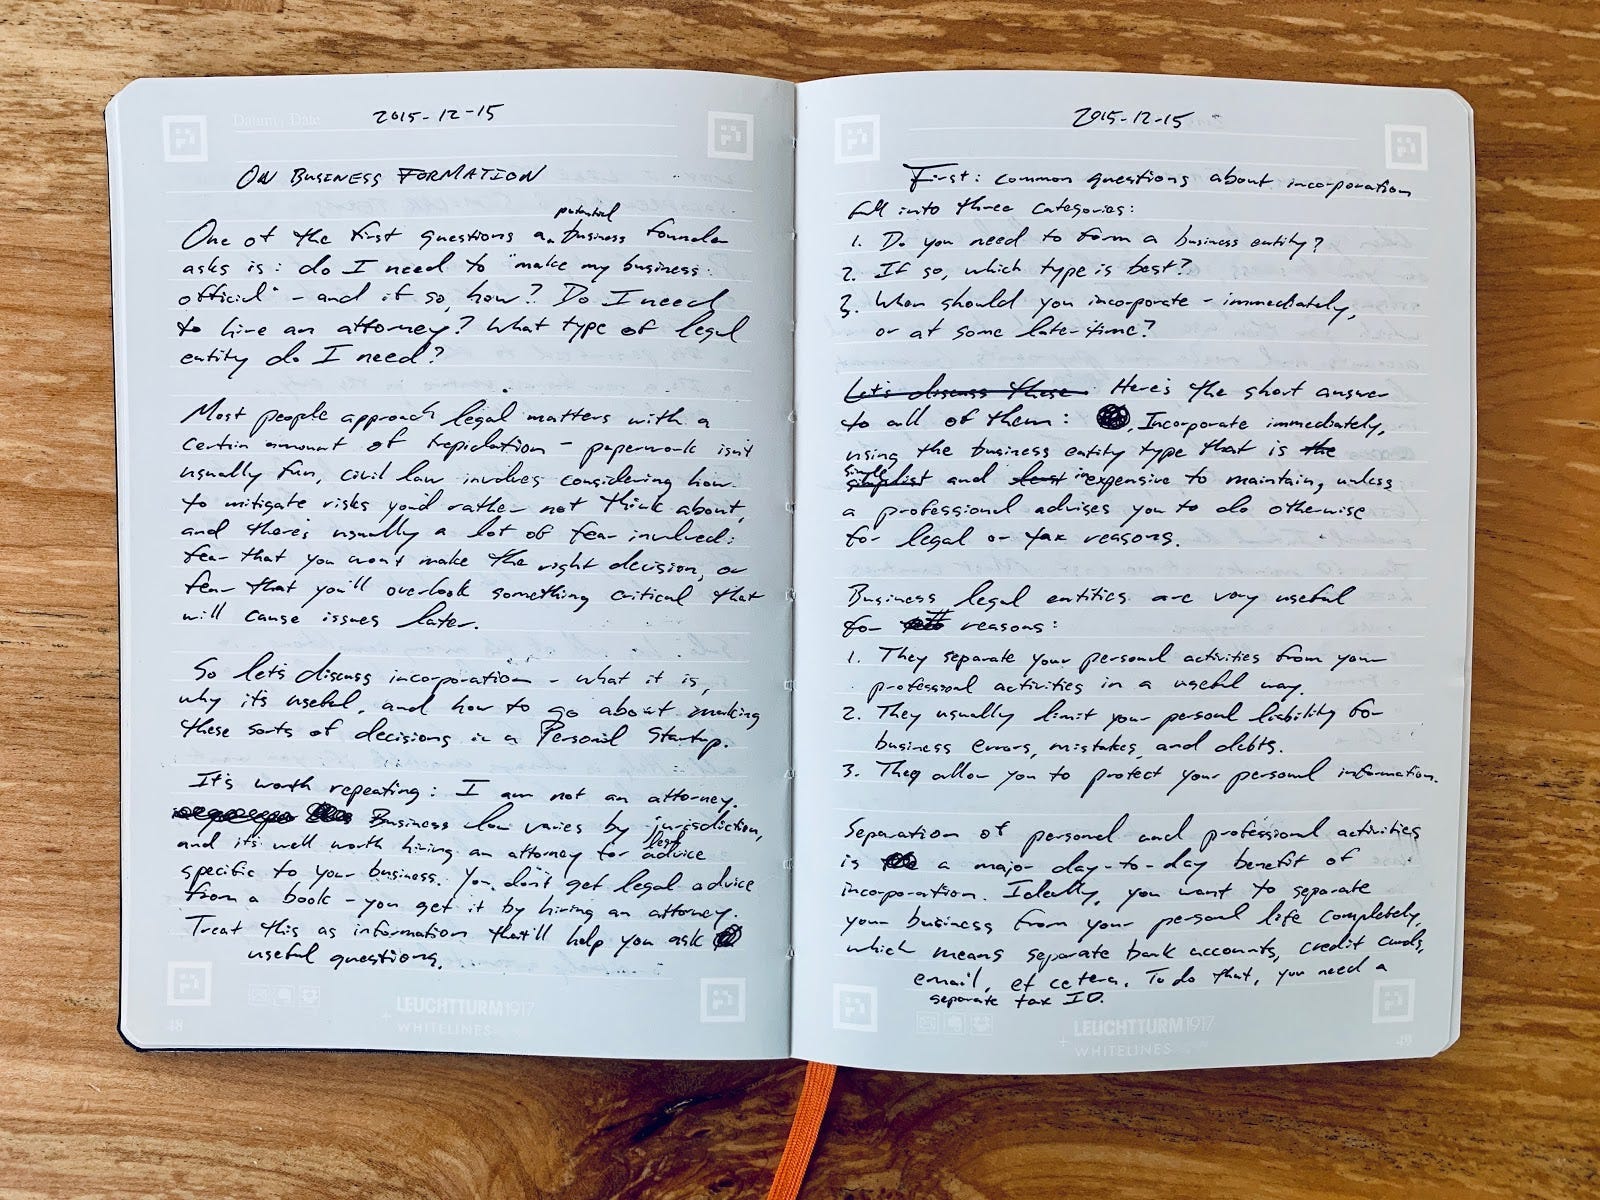 Datum / Date
2015-12-15
ON BUSINESS FORMATION
potential
One of the first questions a business founder
asks is: do I need to "make my business
official" - and if so, how? Do I need
to hire an attorney? What type of legal
entity do I need?
Most people approach legal matters with a
certain amount of trepidation - paperwork isn't
usually fun, civil law involves considering how
to mitigate risks you'd rather not think about,
and there's usually a lot of fear involved:
fear that you won't make the right decision, or
fear that you'll overlook something critical that
will cause issues later.
So let's discuss incorporation - what it is,
why it's useful, and how to go about making
these sorts of decisions in a Personal Startup.
It's worth repeating: I am not an attorney.
Business law varies by jurisdiction,
legal
and it's well worth hiring an attorney for advice
specific to your business. You don't get legal advice
from a book - you get it by hiring an attorney.
Treat this as information that'll help you ask
useful questions.
48
LEUCHTTURM1917
+ WHITELINES
2015-12-15
First: common questions about incorporation
fall into three categories:
1. Do you need to form a business entity?
2. If so, which type is best?
3. When should you incorporate - immediately,
or at some later time?
Let's discuss these Here's the short answer
to all of them: Incorporate immediately,
using the business entity type that is the
simple
simplist and least inexpensive to maintain, unless
a professional advises you to do otherwise
for legal or tax reasons.
Business legal entities are very useful
for reasons:
1. They separate your personal activities from your
professional activities in a useful way.
2. They usually limit your personal liability for
business errors, mistakes, and debts.
3. They allow you to protect your personal information.
Separation of personal and professional activities
is a major day-to-day benefit of
incorporation. Ideally, you want to separate
your business from your personal life completely,
which means separate bank accounts, credit cards,
email, et cetera. To do that, you need a
separate tax ID.
LEUCHTTURM1917
+ WHITELINES
49